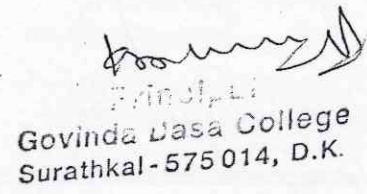 Principal
Govinda Dasa College
Surathkal - 575 014, D.K.